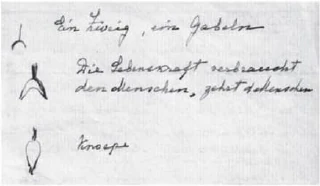 Ein Zweig, ein Gabeln
Die Lebenskraft verbraucht
den Menschen, zehrt d Menschen
Knospe